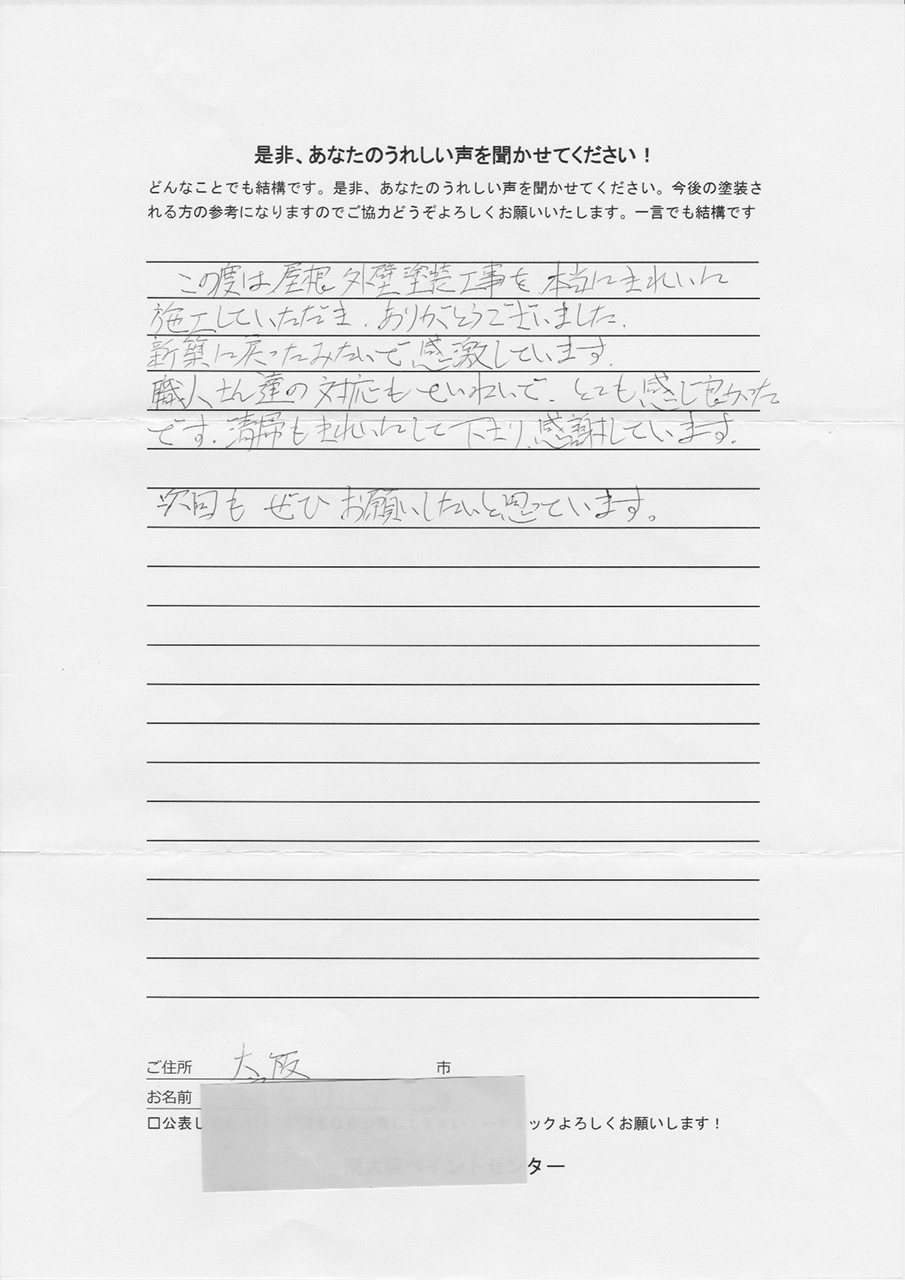 是非、あなたのうれしい声を聞かせてください！
どんなことでも結構です。是非、あなたのうれしい声を聞かせてください。今後の塗装さ
れる方の参考になりますのでご協力どうぞよろしくお願いいたします。一言でも結構です
この度は屋根、外壁塗装工事を、本当にきれいに
施工していただき、ありがとうございました。
新築に戻ったみたいで感激しています。
職人さん達の対応もていねいで、とても感じ良かった
です。清掃もきれいにして下さり、感謝しています。
次回も ぜひ お願いしたいと思っています。
ご住所 大阪 市
お名前
□公表し ックよろしくお願いします！
ター